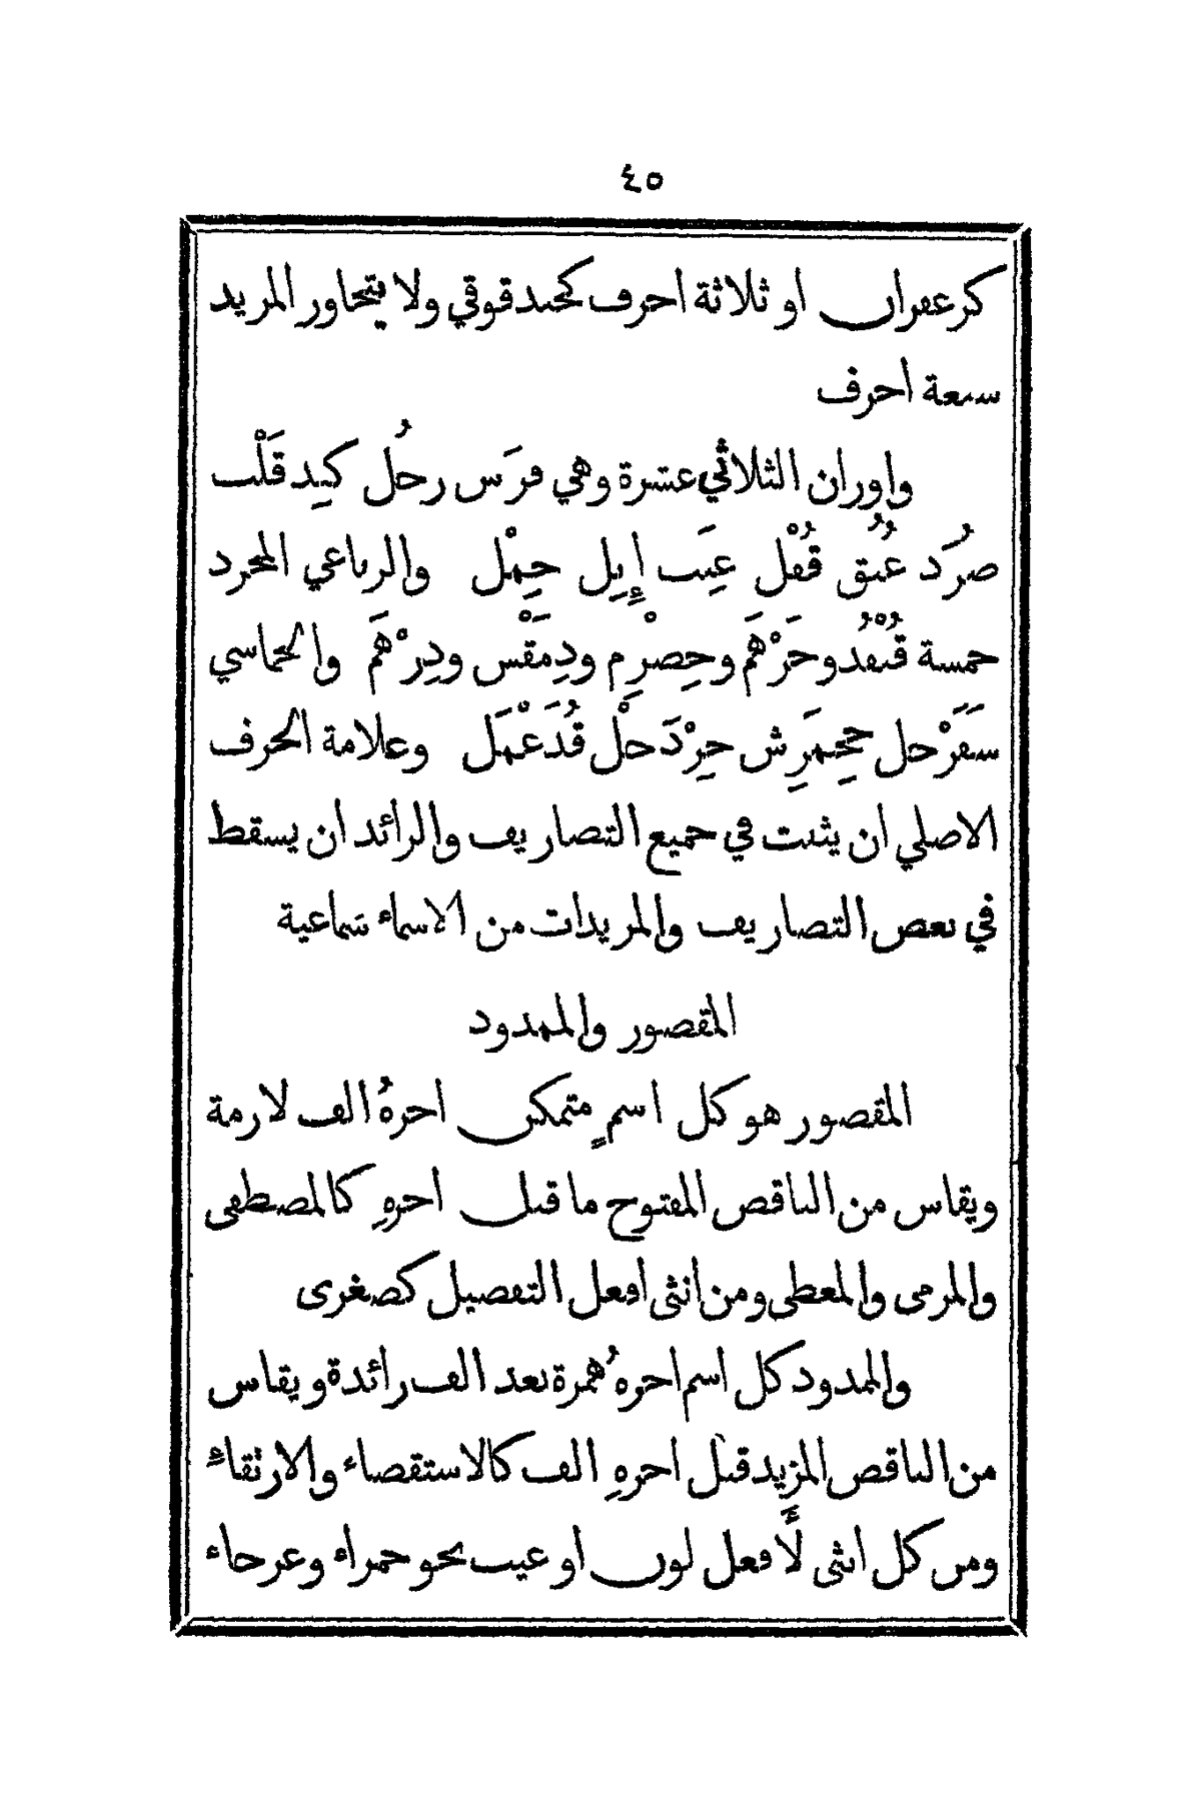 ٤٥
كزعفران او ثلاثة احرف كخندقوقي ولا يتجاوز المزيد
سبعة احرف
واوزان الثلاثي عشرة وهي فرَس رجُل كبِد قَلْب
صُرَد عُنُق قُفْل عِنَب إِبِل حِمْل والرباعي المجرد
خمسة قُنْفُد وجَرْهَم وحِصْرِم ودِمَقْس ودِرْهَم والخماسي
سَفَرْجل جحمَرِش جِرْدَحْل قُذَعْمل وعلامة الحرف
الاصلي ان يثبت في جميع التصاريف والزائد ان يسقط
في بعض التصاريف والمزيدات من الاسماء سماعية
المقصور والممدود
المقصور هو كل اسمٍ متمكن اخرهُ الف لازمة
ويقاس من الناقص المفتوح ما قبل اخرهِ كالمصطفى
والمرمى والمعطى ومن انثى افعل التفضيل كصغرى
والممدود كل اسم اخرهُ همزة بعد الف زائدة ويقاس
من الناقص المزيد قبل اخرهِ الف كالاستقصاء والارتقاءِ
ومن كل انثى لأَفعل لون او عيب نحو حمراء وعرجاء